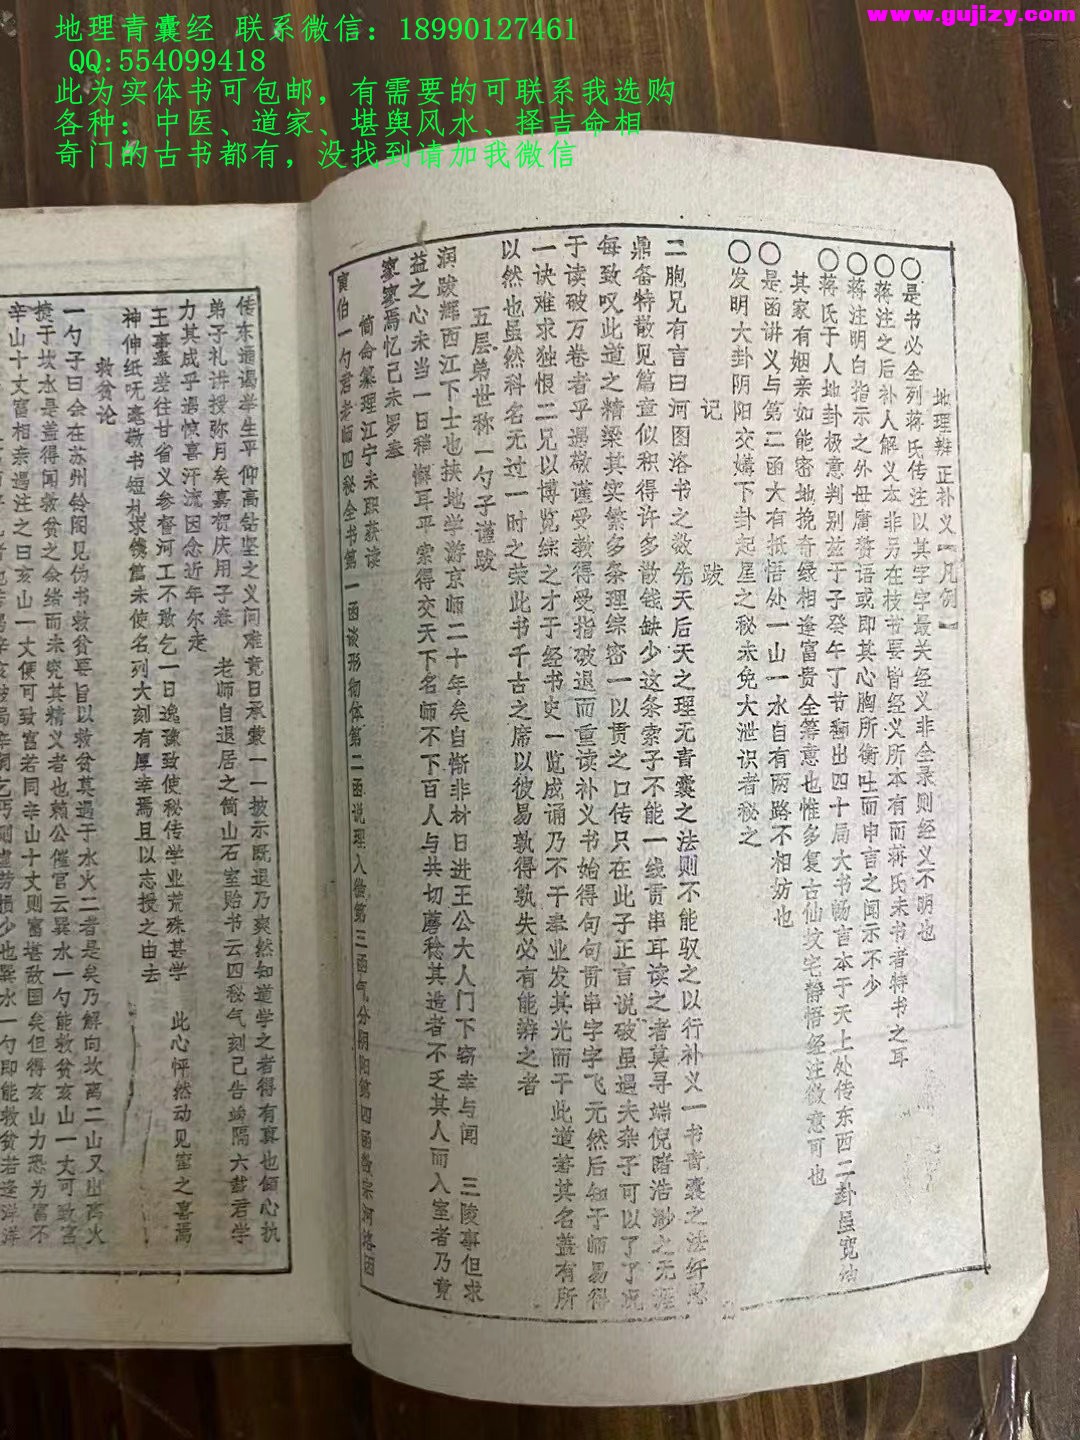 地理青囊经 联系微信：18990127461
QQ:554099418
此为实体书可包邮，有需要的可联系我选购
各种：中医、道家、堪舆风水、择吉命相
奇门的古书都有，没找到请加我微信
www.gujizy.com
地理辨正补义『凡例』
○是书必全列蒋氏传注以其字字最关经义非全录则经义不明也
○蒋注之后补人解义本非另在枝节要皆经义所本有而蒋氏未书者特书之耳
○蒋注明白指示之外毋庸赘语或即其心胸所衡吐而申言之闻示不少
○蒋氏于人地卦极意判别兹于子癸午丁节翻出四十局大书畅言本于天上处传东西二卦虽宽
其家有姻亲如能密地挽奇缘相逢富贵全筹意也惟多复古仙坟宅静悟经注微意可也
○是函讲义与第二函大有抵悟处一山一水自有两路不相妨也
○发明大卦阴阳交媾下卦起星之秘未免大泄识者秘之
记 跋
二胞兄有言曰河图洛书之数先天后天之理无青囊之法则不能驭之以行补义一书青囊之法纤悉
鼎备特散见篇章似积得许多散钱缺少这条索子不能一线贯串耳读之者莫寻端倪睹浩渺之无涯
每致叹此道之精梁其实繁多条理综密一以贯之口传只在此子正言说破虽遇夫杂子可以了了况
于读破万卷者乎遇敬谨受教得受指破退而重读补义书始得句句贯串字字飞元然后知于师易得
一诀难求独恨二兄以博览综之才于经书史一览成诵乃不于举业发其光而于此道著其名盖有所
以然也虽然科名无过一时之荣此书千古之席以彼易孰得孰失必有能辨之者
五层弟世称一勺子谨跋
润跋辉西江下士也挟地学游京师二十年矣自惭非材日进王公大人门下窃幸与闻 三陵事但求
益之心未当一日稍懈耳平索得交天下名师不下百人与共切蘑稔其造者不乏其人而入室者乃竟
寥寥焉忆己未罗
简命纂理江宁未职获读
寅伯一勺君老师四秘全书第一函谈形彻体第二函说理入微第三函气分阴阳第四函备宗河洛因
传东道谒举生平仰高钻坚之义问难竟日承蒙一一披示既退乃爽然知道学之者得有真也倾心执
弟子礼讲授弥月矣嘉贺庆用子春 老师自退居之简山石室贻书云四秘气刻己告峻隔六载君学
力其成乎遇惊喜汗流因念近年尔走
王事差往甘省义参督河工不敢乞一日逸豫致使秘传学业荒殊甚学 此心怦然动见室之喜焉
神伸纸呒毫敬书短札求馈篇未使名列大刻有厚幸焉且以志授之由去
救贫论
一勺子曰会在苏州铃阳见伪书救贫要旨以救贫莫过于水火二者是矣乃解向坎离二山又出离火
撓于坎水是盖得闻救贫之会绪而未究其精义者也赖公催官云巽水一勺能救贫亥山一丈可致富
辛山十丈富相亲遇注之曰亥山一丈便可致富若同辛山十丈则富堪敌国矣但得亥山力恐为富不